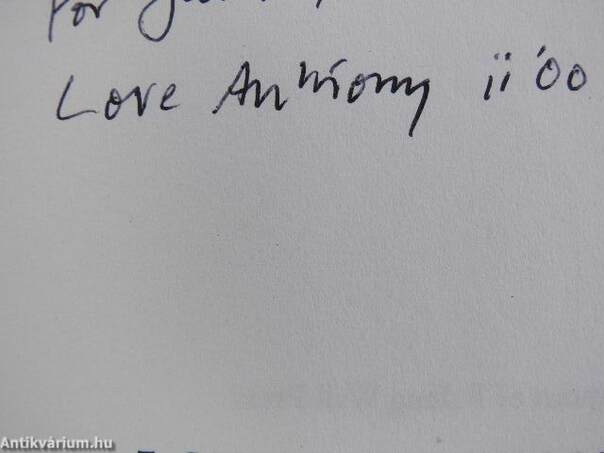 For
Love Anthony ii '00
Antikvárium.hu